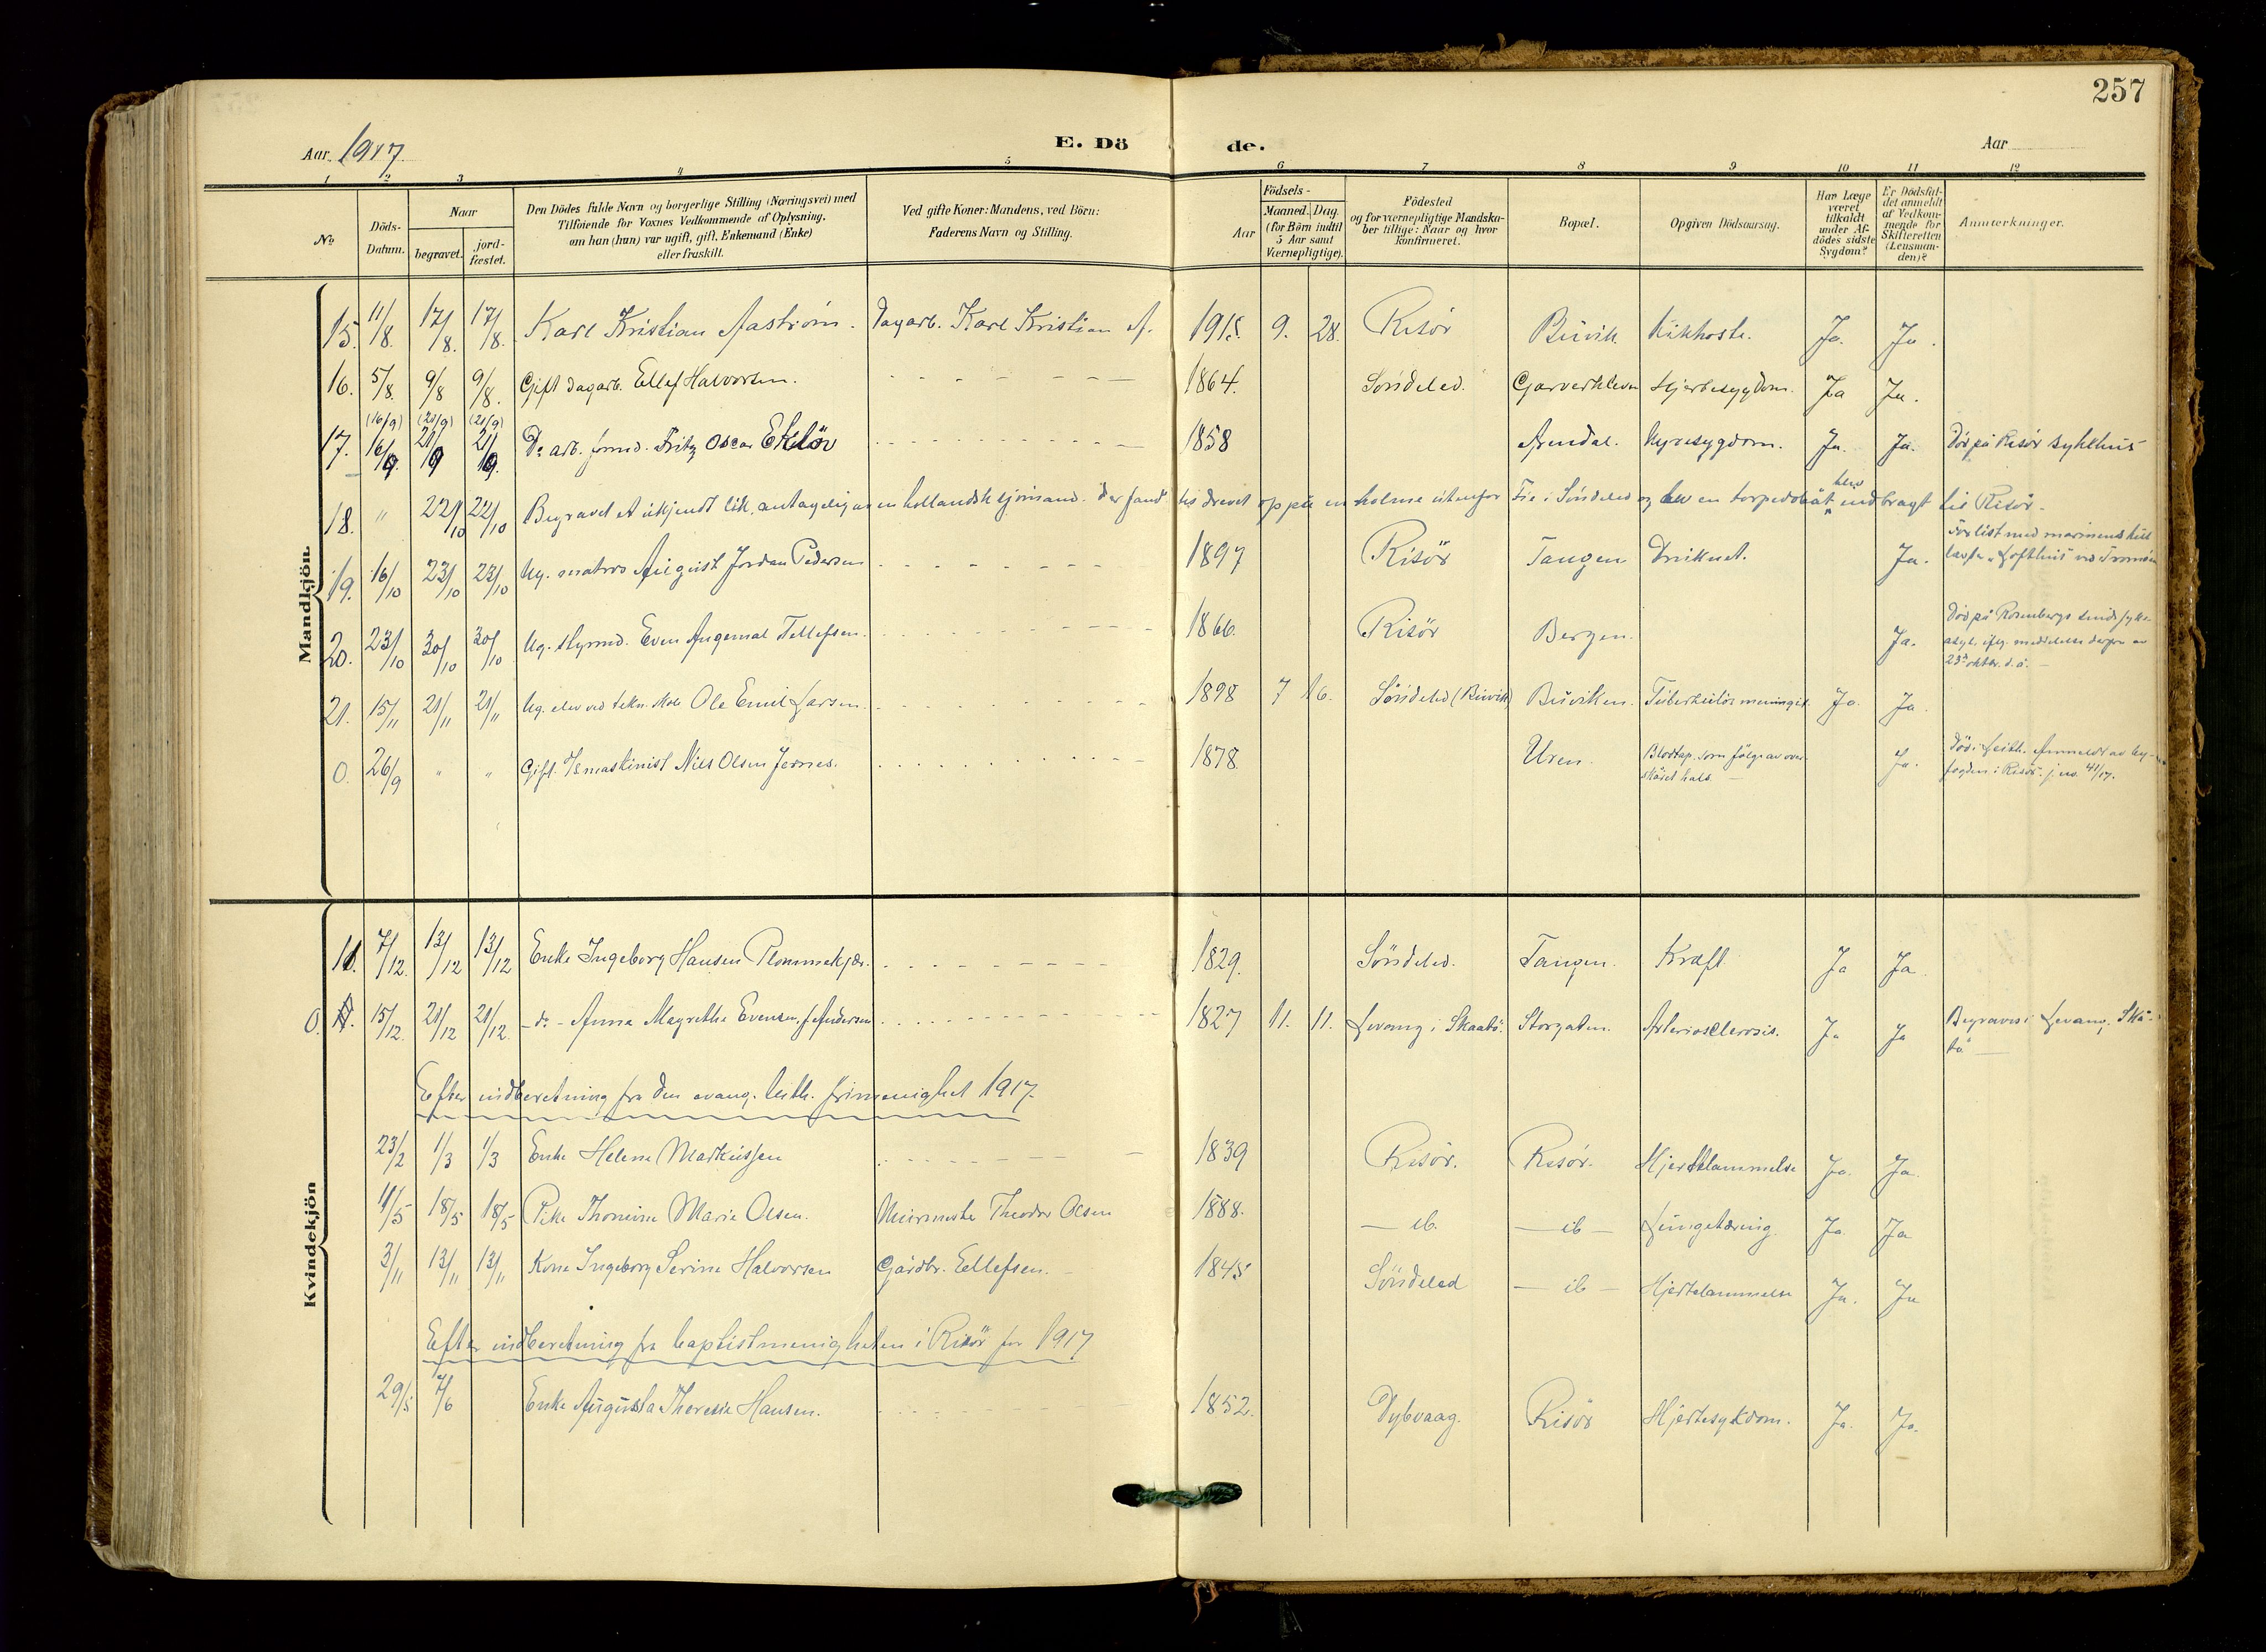 257
Aar 1917
E. Dö de.
Aar
1 2 3 4 5 6 7 8 9 10 11 12
No
Döds-Datum.
Naar
begravet. jord-fæstet.
Den Dödes fulde Navn og borgerlige Stilling (Næringsvei) med
Tilföiende for Voxnes Vedkommende af Oplysning,
om han (hun) var ugift, gift, Enkemand (Enke)
eller fraskilt.
Ved gifte Koner: Mandens, ved Börn:
Faderens Navn og Stilling.
Födsels-
Aar Maaned. Dag.
(for Börn indtil
5 Aar samt
Værnepligtige).
Födested
og for værnepligtige Mandska-
ber tillige: Naar og hvor
konfirmeret.
Bopæl.
Opgiven Dödsaarsag.
Har Læge
været
tilkaldt
under Af-
dödes sidste
Sygdom?
Er Dödsfal-
det anmeldt
af Vedkom-
mende for
Skifteretten
(Lensman-
den)?
Anmærkninger.
Mandkjön.
15. 11/8. 17/8. 17/8. Karl Kristian Aaström. Dagarb. Karl Kristian A. 1915. 9. 28. Risör Buvik. Kikhoste. Ja. Ja.
16. 5/8. 9/8 9/8. Gift dagarb. Ellef Halvorsen. 1864. Söndeled. Garverkleven Hjertesygdom. Ja Ja.
(16/9) (21/9) (21/9)
17. 16/9. 21/9 21/9. Do arb. formd. Fritz Oscar Eklöv 1858 Arendal. Nyresygdom. Ja. Ja. Död på Risör sykehus
18. " 22/10 22/10 Begravet et ukjendt lik, antagelig av en hollandsk sjömand. Der fandtes drevet op på en holme utenfor Fie i Söndeled og blev en torpedobåt indbragt til Risör.
blev
19. 16/10 23/10 23/10 Ug. matros August Jordan Pedersen 1897 Risör Tangen Druknet. Ja. Forlist med marinens
"Lofthus" ved Tromöen
20. 23/10 30/10 30/10 Ug. styrmd. Even Angemal Tellefsen. 1866. Risör Bergen. Ja. Död på Rosenbergs sindssyke-
asyl, iflg. meddelelse derfra av
23de oktbr. d. å.
21. 15/11 21/11 21/11 Ug. elev ved tekn. skole Ole Emil Larsen. 1898 7 16. Söndeled (Buvik) Buviken. Tuberkulös meningit. Ja. Ja.
0. 26/9 " " Gift. maskinist Nils Olsen Jernes. 1878. Uren. Blodtap, som fölge av over-
skåret hals. Ja. Död i Leith. Anmeldt av by-
fogden i Risör j. no. 41/17.
Kvindekjön
11. 7/12. 13/12 13/12 Enke Ingeborg Hansen Plommekjær. 1829. Söndeled. Tangen. Kræft. Ja Ja.
0. 15/12. 21/12 21/12. - do - Anna Magrethe Evensen, f. Andersen 1827 11. 11. Levang i Skaatö. Storgaten. Arteriosclerosis. Ja Ja Begraves i Levang, Skå-
tö
Efter indberetning fra den evang. luth. frimenighet 1917.
23/2 1/3 1/3 Enke Helene Markussen 1839 Risör. Risör. Hjertelammelse Ja. Ja.
11/5 18/5 18/5 Pike Thomine Marie Olsen. Murmester Theodor Olsen 1888. — ib. — ib — Lungetæring. Ja. Ja
3/11 13/11 13/11 Kone Ingeborg Serine Halvorsen Gårdbr. Ellefsen. 1845 Söndeled — ib — Hjertelammelse Ja. Ja
Efter indberetning fra baptistmenigheten i Risör for 1917
29/5 7/6 Enke Augusta Theresie Hansen. 1852. Dybvaag. Risör Hjertesykdom. Ja. Ja.